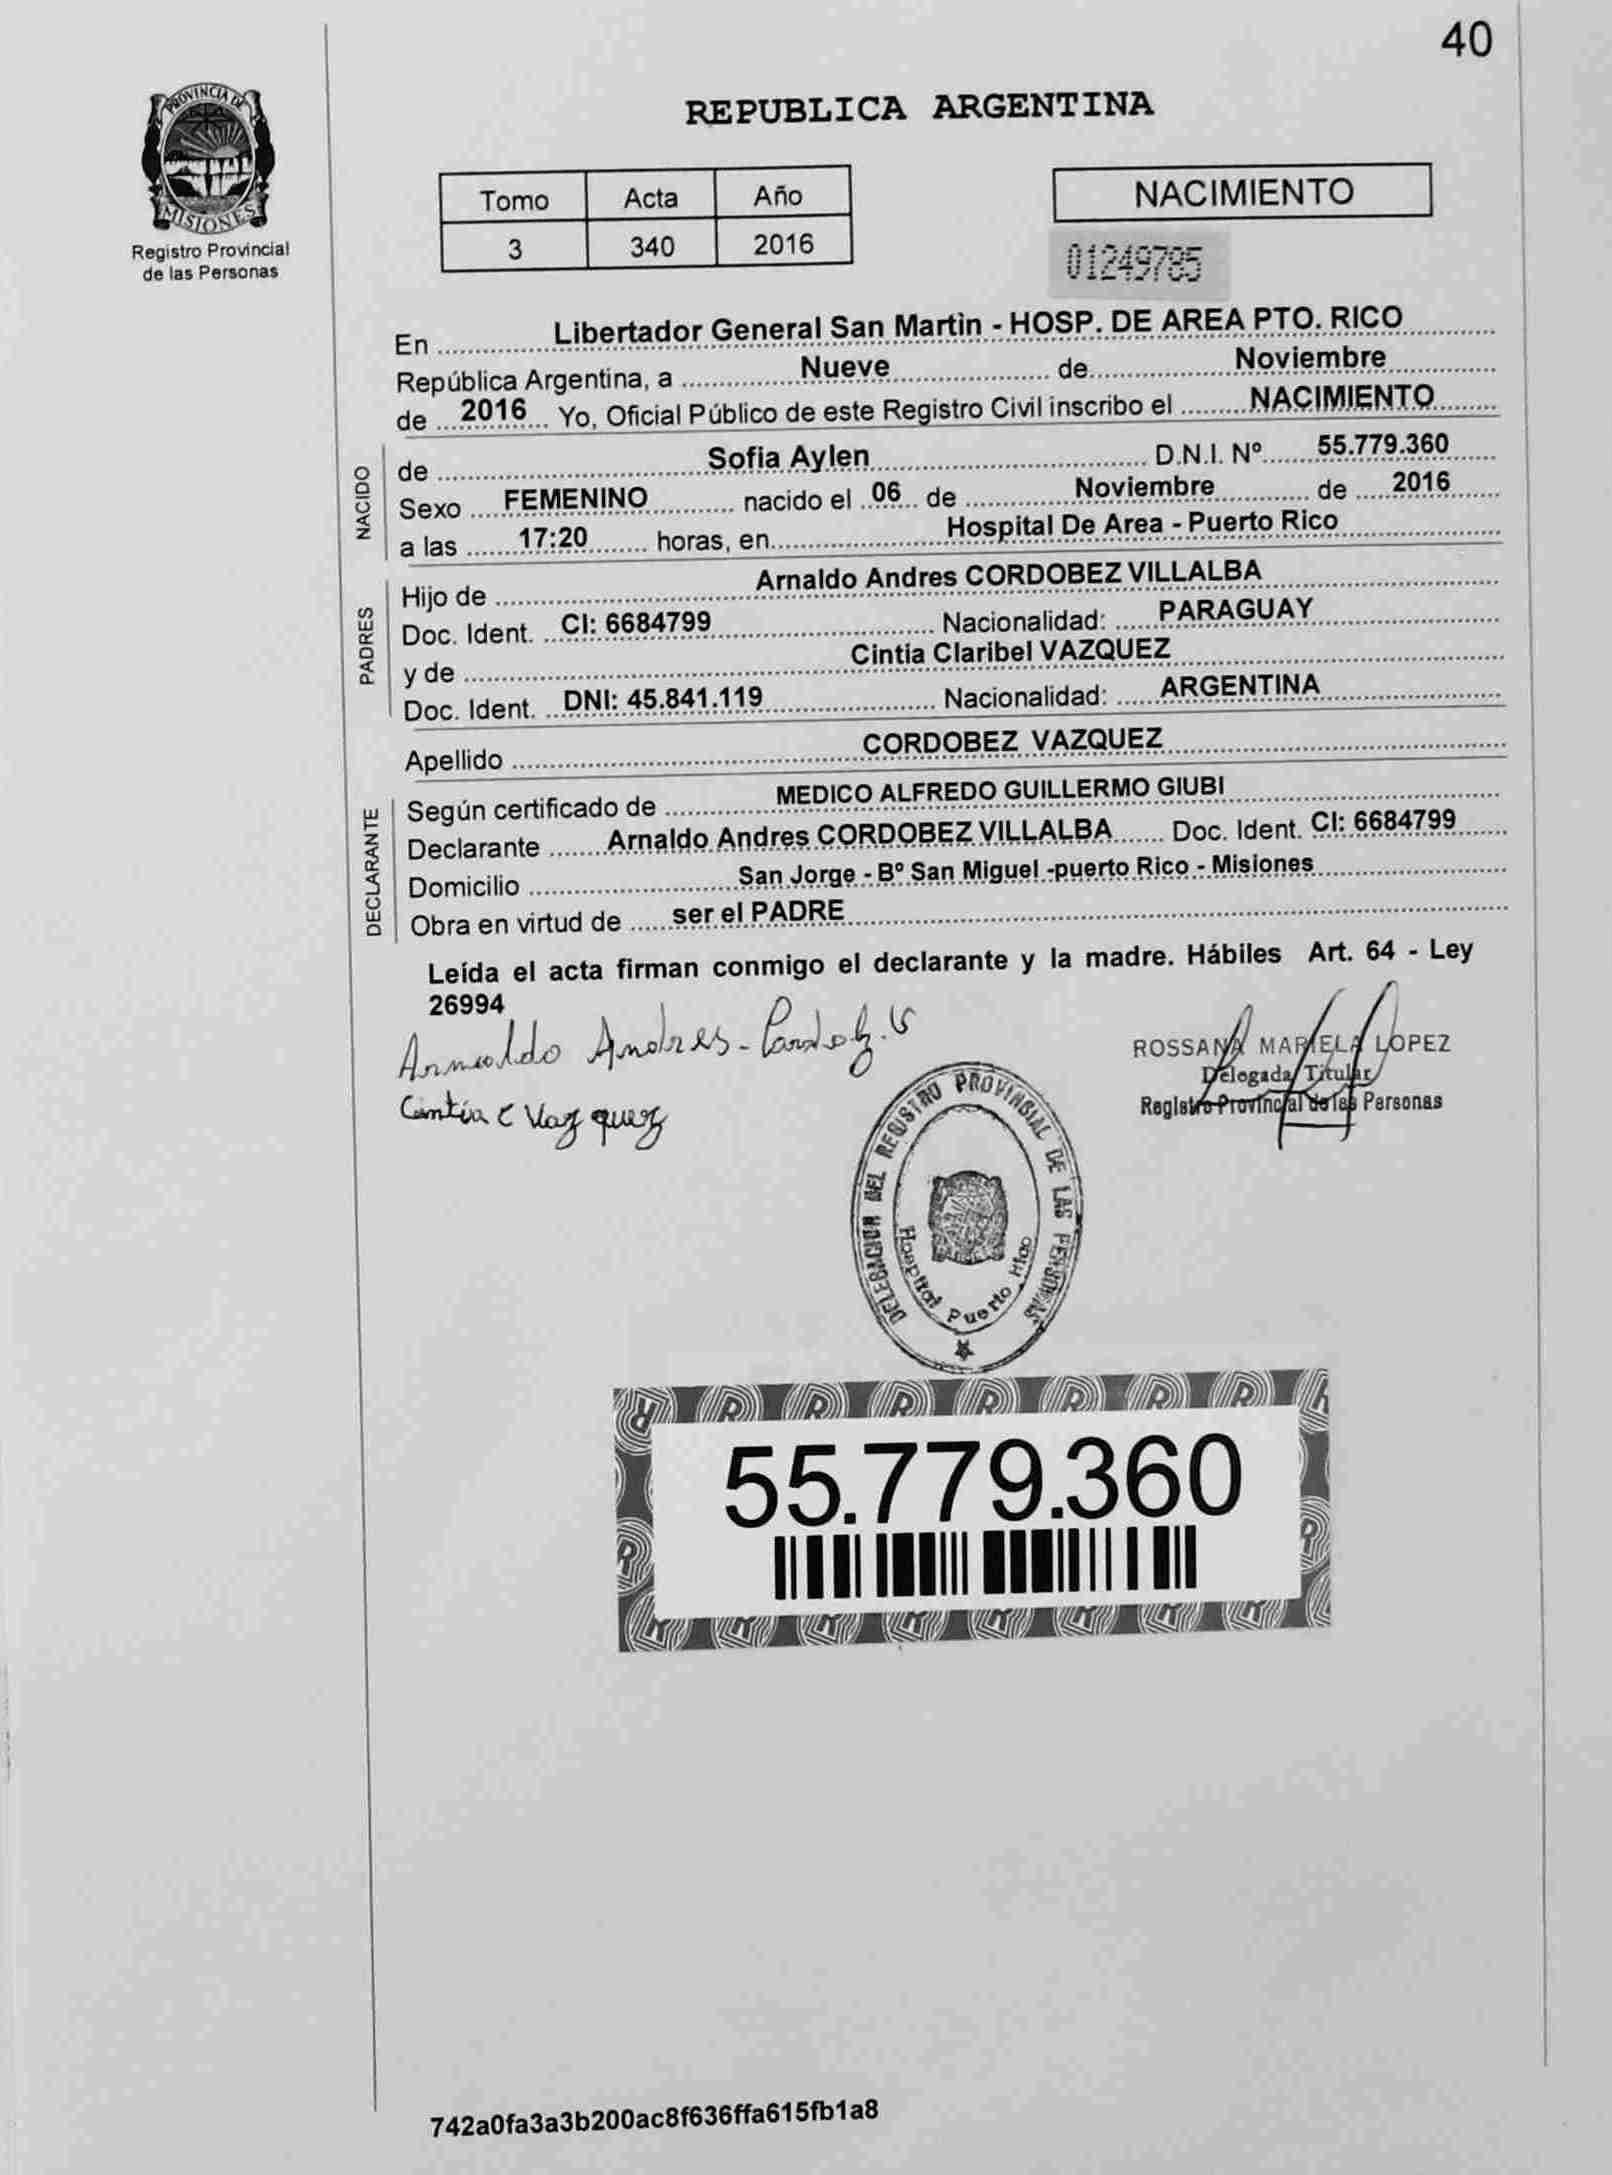 40
PROVINCIA DE
MISIONES
Registro Provincial
de las Personas
REPUBLICA ARGENTINA
Tomo Acta Año
3 340 2016
NACIMIENTO
01249785
En Libertador General San Martìn - HOSP. DE AREA PTO. RICO
República Argentina, a Nueve de Noviembre
de 2016 Yo, Oficial Público de este Registro Civil inscribo el NACIMIENTO
NACIDO
de Sofia Aylen D.N.I. Nº 55.779.360
Sexo FEMENINO nacido el 06 de Noviembre de 2016
a las 17:20 horas, en Hospital De Area - Puerto Rico
PADRES
Hijo de Arnaldo Andres CORDOBEZ VILLALBA
Doc. Ident. CI: 6684799 Nacionalidad: PARAGUAY
y de Cintia Claribel VAZQUEZ
Doc. Ident. DNI: 45.841.119 Nacionalidad: ARGENTINA
Apellido CORDOBEZ VAZQUEZ
DECLARANTE
Según certificado de MEDICO ALFREDO GUILLERMO GIUBI
Declarante Arnaldo Andres CORDOBEZ VILLALBA Doc. Ident. CI: 6684799
Domicilio San Jorge - Bº San Miguel -puerto Rico - Misiones
Obra en virtud de ser el PADRE
Leída el acta firman conmigo el declarante y la madre. Hábiles Art. 64 - Ley
26994
Arnaldo Andres - Cordobz. V
Cintia C Vazquez
ROSSANA MARIELA LOPEZ
Delegada Titular
Registro Provincial de las Personas
DELEGACION DEL REGISTRO PROVINCIAL DE LAS PERSONAS
Hospital Puerto Rico
55.779.360
742a0fa3a3b200ac8f636ffa615fb1a8